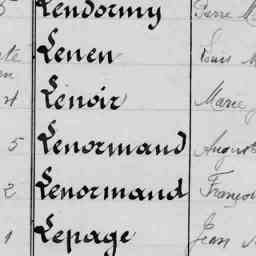 Lendormy Pierre
te Lenen Louis
en
4 Lenoir Marie
5 Lenormand August
2 Lenormand Franço
1 Lepage Jean